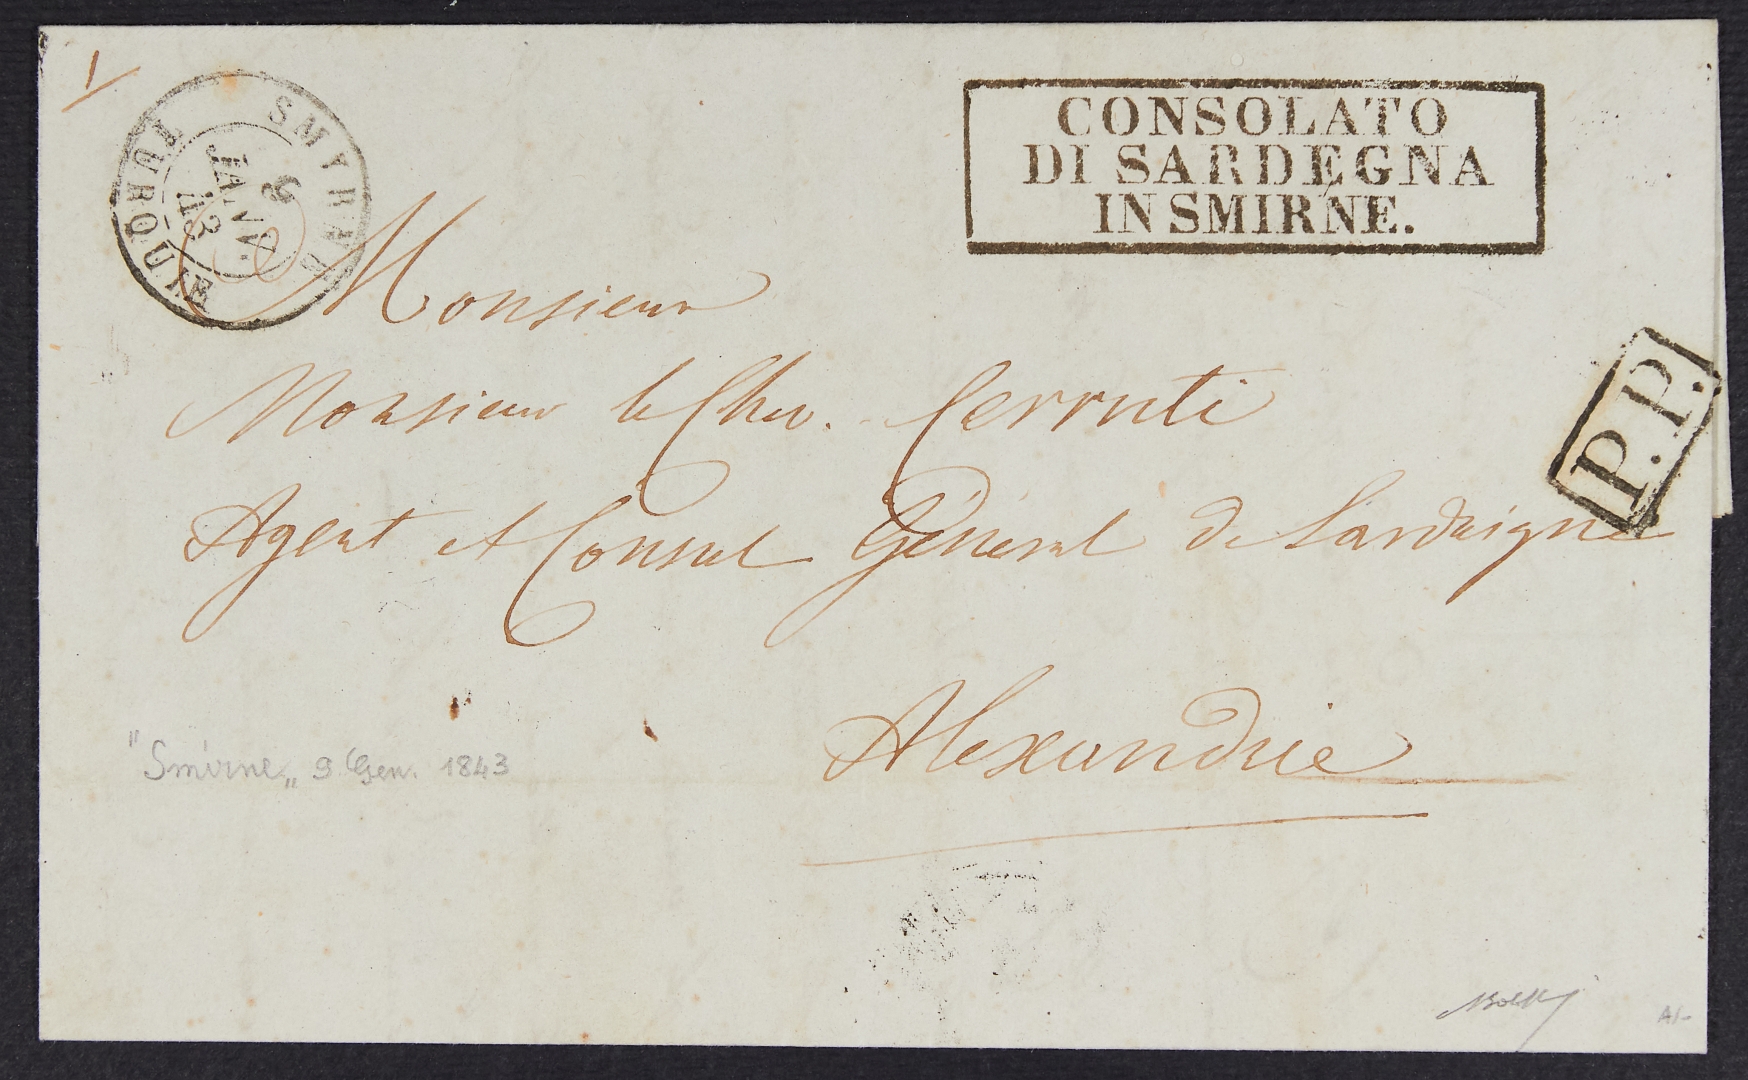 1
SMYRNE
9
JANV.
43
TURQUIE
CONSOLATO
DI SARDEGNA
IN SMIRNE.
P.P.
Monsieur
Monsieur le Chev. Cerruti
Agent et Consul Général de Sardaigne
Alexandrie
"Smirne„ 9 Gen. 1843